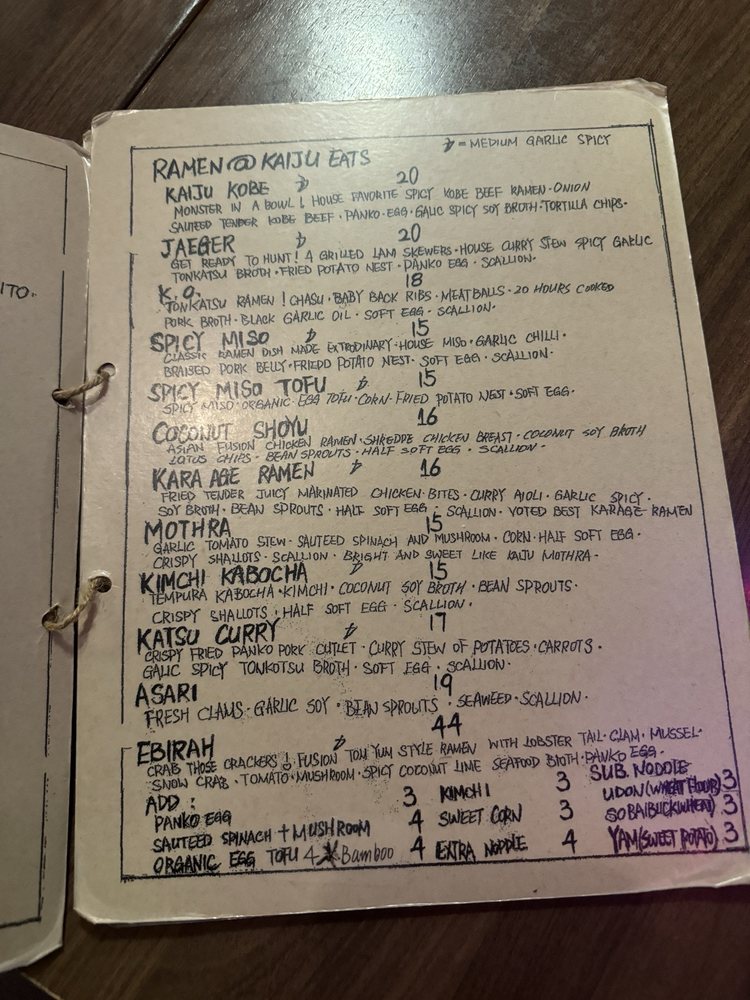 ITO.
RAMEN @ KAIJU EATS
= MEDIUM GARLIC SPICY
KAIJU KOBE 20
MONSTER IN A BOWL! HOUSE FAVORITE SPICY KOBE BEEF RAMEN · ONION
SAUTEED TENDER KOBE BEEF · PANKO · EGG · GALIC SPICY SOY BROTH · TORTILLA CHIPS ·
JAEGER 20
GET READY TO HUNT! 4 GRILLED LAM SKEWERS · HOUSE CURRY STEW SPICY GARLIC
TONKATSU BROTH · FRIED POTATO NEST · PANKO EGG · SCALLION ·
K.O. 18
TONKATSU RAMEN! CHASU · BABY BACK RIBS · MEATBALLS · 20 HOURS COOKED
PORK BROTH · BLACK GARLIC OIL · SOFT EGG · SCALLION ·
SPICY MISO 15
CLASSIC RAMEN DISH MADE EXTRODINARY · HOUSE MISO · GARLIC CHILLI ·
BRAISED PORK BELLY · FRIEDD POTATO NEST · SOFT EGG · SCALLION ·
SPICY MISO TOFU 15
SPICY MISO · ORGANIC EGG TOFU · CORN · FRIED POTATO NEST · SOFT EGG ·
COCONUT SHOYU 16
ASIAN FUSION CHICKEN RAMEN · SHREDDE CHICKEN BREAST · COCONUT SOY BROTH
LOTUS CHIPS · BEAN SPROUTS · HALF SOFT EGG · SCALLION ·
KARA AGE RAMEN 16
FRIED TENDER JUICY MARINATED CHICKEN · BITES · CURRY AIOLI · GARLIC SPICY ·
SOY BROTH · BEAN SPROUTS · HALF SOFT EGG · SCALLION · VOTED BEST KARAGE RAMEN
MOTHRA 15
GARLIC TOMATO STEW · SAUTEED SPINACH AND MUSHROOM · CORN · HALF SOFT EGG ·
CRISPY SHALLOTS · SCALLION · BRIGHT AND SWEET LIKE KAIJU MOTHRA ·
KIMCHI KABOCHA 15
TEMPURA KABOCHA · KIMCHI · COCONUT SOY BROTH · BEAN SPROUTS ·
CRISPY SHALLOTS · HALF SOFT EGG · SCALLION ·
KATSU CURRY 17
CRISPY FRIED PANKO PORK CUTLET · CURRY STEW OF POTATOES · CARROTS ·
GALIC SPICY TONKOTSU BROTH · SOFT EGG · SCALLION ·
ASARI 19
FRESH CLAMS · GARLIC SOY · BEAN SPROUTS · SEAWEED · SCALLION ·
EBIRAH 44
CRAB THOSE CRACKERS! FUSION TOM YUM STYLE RAMEN WITH LOBSTER TAIL · CLAM · MUSSEL ·
SNOW CRAB · TOMATO · MUSHROOM · SPICY COCONUT LIME SEAFOOD BROTH · PANKO EGG ·
ADD:
PANKO EGG 3
SAUTEED SPINACH + MUSHROOM 4
ORGANIC EGG TOFU 4 Bamboo 4
KIMCHI 3
SWEET CORN 3
EXTRA NODDLE 4
SUB NODDLE
UDON (WHEAT FLOUR) 3
SOBA (BUCKWHEAT) 3
YAM (SWEET POTATO) 3